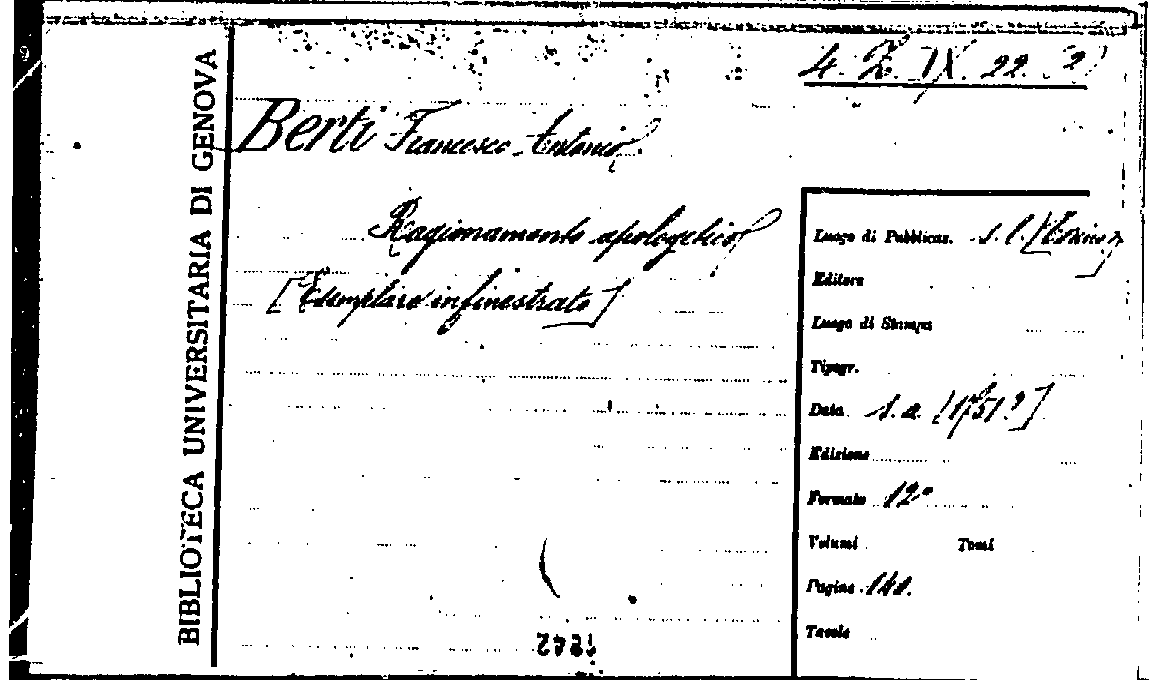 4. Z. IX. 22. (2)
BIBLIOTECA UNIVERSITARIA DI GENOVA
Berti Francesco Antonio.
Ragionamento apologetico
[Esemplare infinestrato]
Luogo di Pubblicaz. s. l. [Torino]
Editore
Luogo di Stampa
Tipogr.
Data s. a. [1751?]
Edizione
Formato 12°
Volumi Tomi
Pagine 148.
Tavole